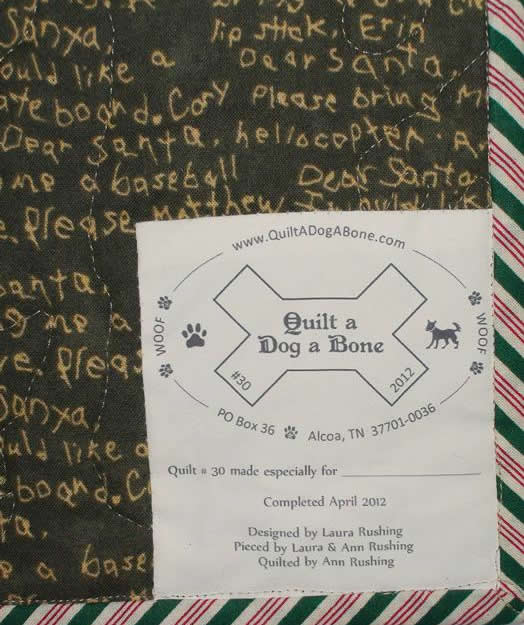 Sanxa, lip stick. Erin
ould like a Dear Santa
ate board. Cory Please bring M
Dear Santa, hellocopter. A.
me a baseball Dear Santa
e. please Matthew I would lik
santa
g me a
ve. pleas
Sanxa,
ould like a
board. C
ta.
a base
www.QuiltADogABone.com
WOOF
WOOF
Quilt a
Dog a Bone
#30
2012
PO Box 36 Alcoa, TN 37701-0036
Quilt # 30 made especially for
Completed April 2012
Designed by Laura Rushing
Pieced by Laura & Ann Rushing
Quilted by Ann Rushing